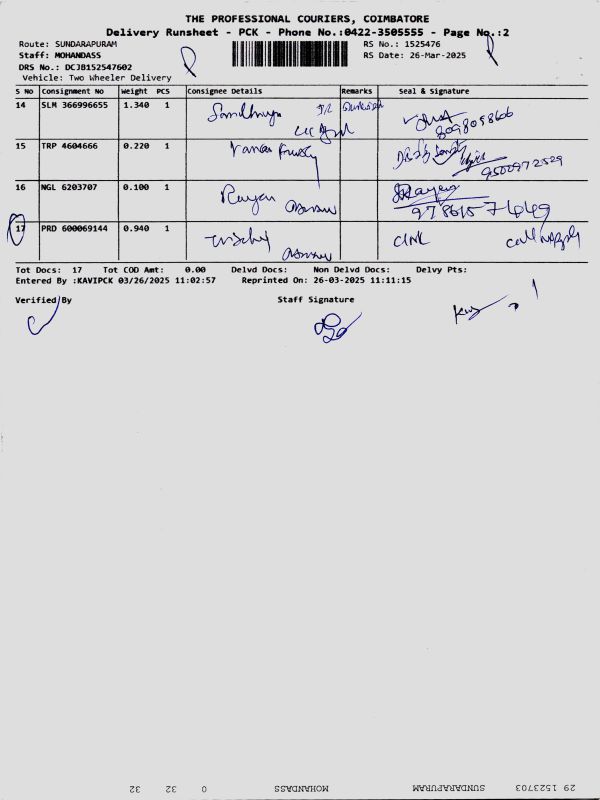 THE PROFESSIONAL COURIERS, COIMBATORE
Delivery Runsheet - PCK - Phone No.:0422-3505555 - Page No.:2
Route: SUNDARAPURAM
RS No.: 1525476
Staff: MOHANDASS
RS Date: 26-Mar-2025
DRS No.: DCJB152547602
Vehicle: Two Wheeler Delivery
S No Consignment No Weight PCS Consignee Details Remarks Seal & Signature
14 SLM 366996655 1.340 1
8098098606
15 TRP 4604666 0.220 1
9500972529
16 NGL 6203707 0.100 1 Rayan
17 PRD 600069144 0.940 1
Tot Docs: 17 Tot COD Amt: 0.00 Delvd Docs: Non Delvd Docs: Delvy Pts:
Entered By :KAVIPCK 03/26/2025 11:02:57 Reprinted On: 26-03-2025 11:11:15
Verified By Staff Signature
29 1523703 SUNDARAPURAM MOHANDASS 0 32 32